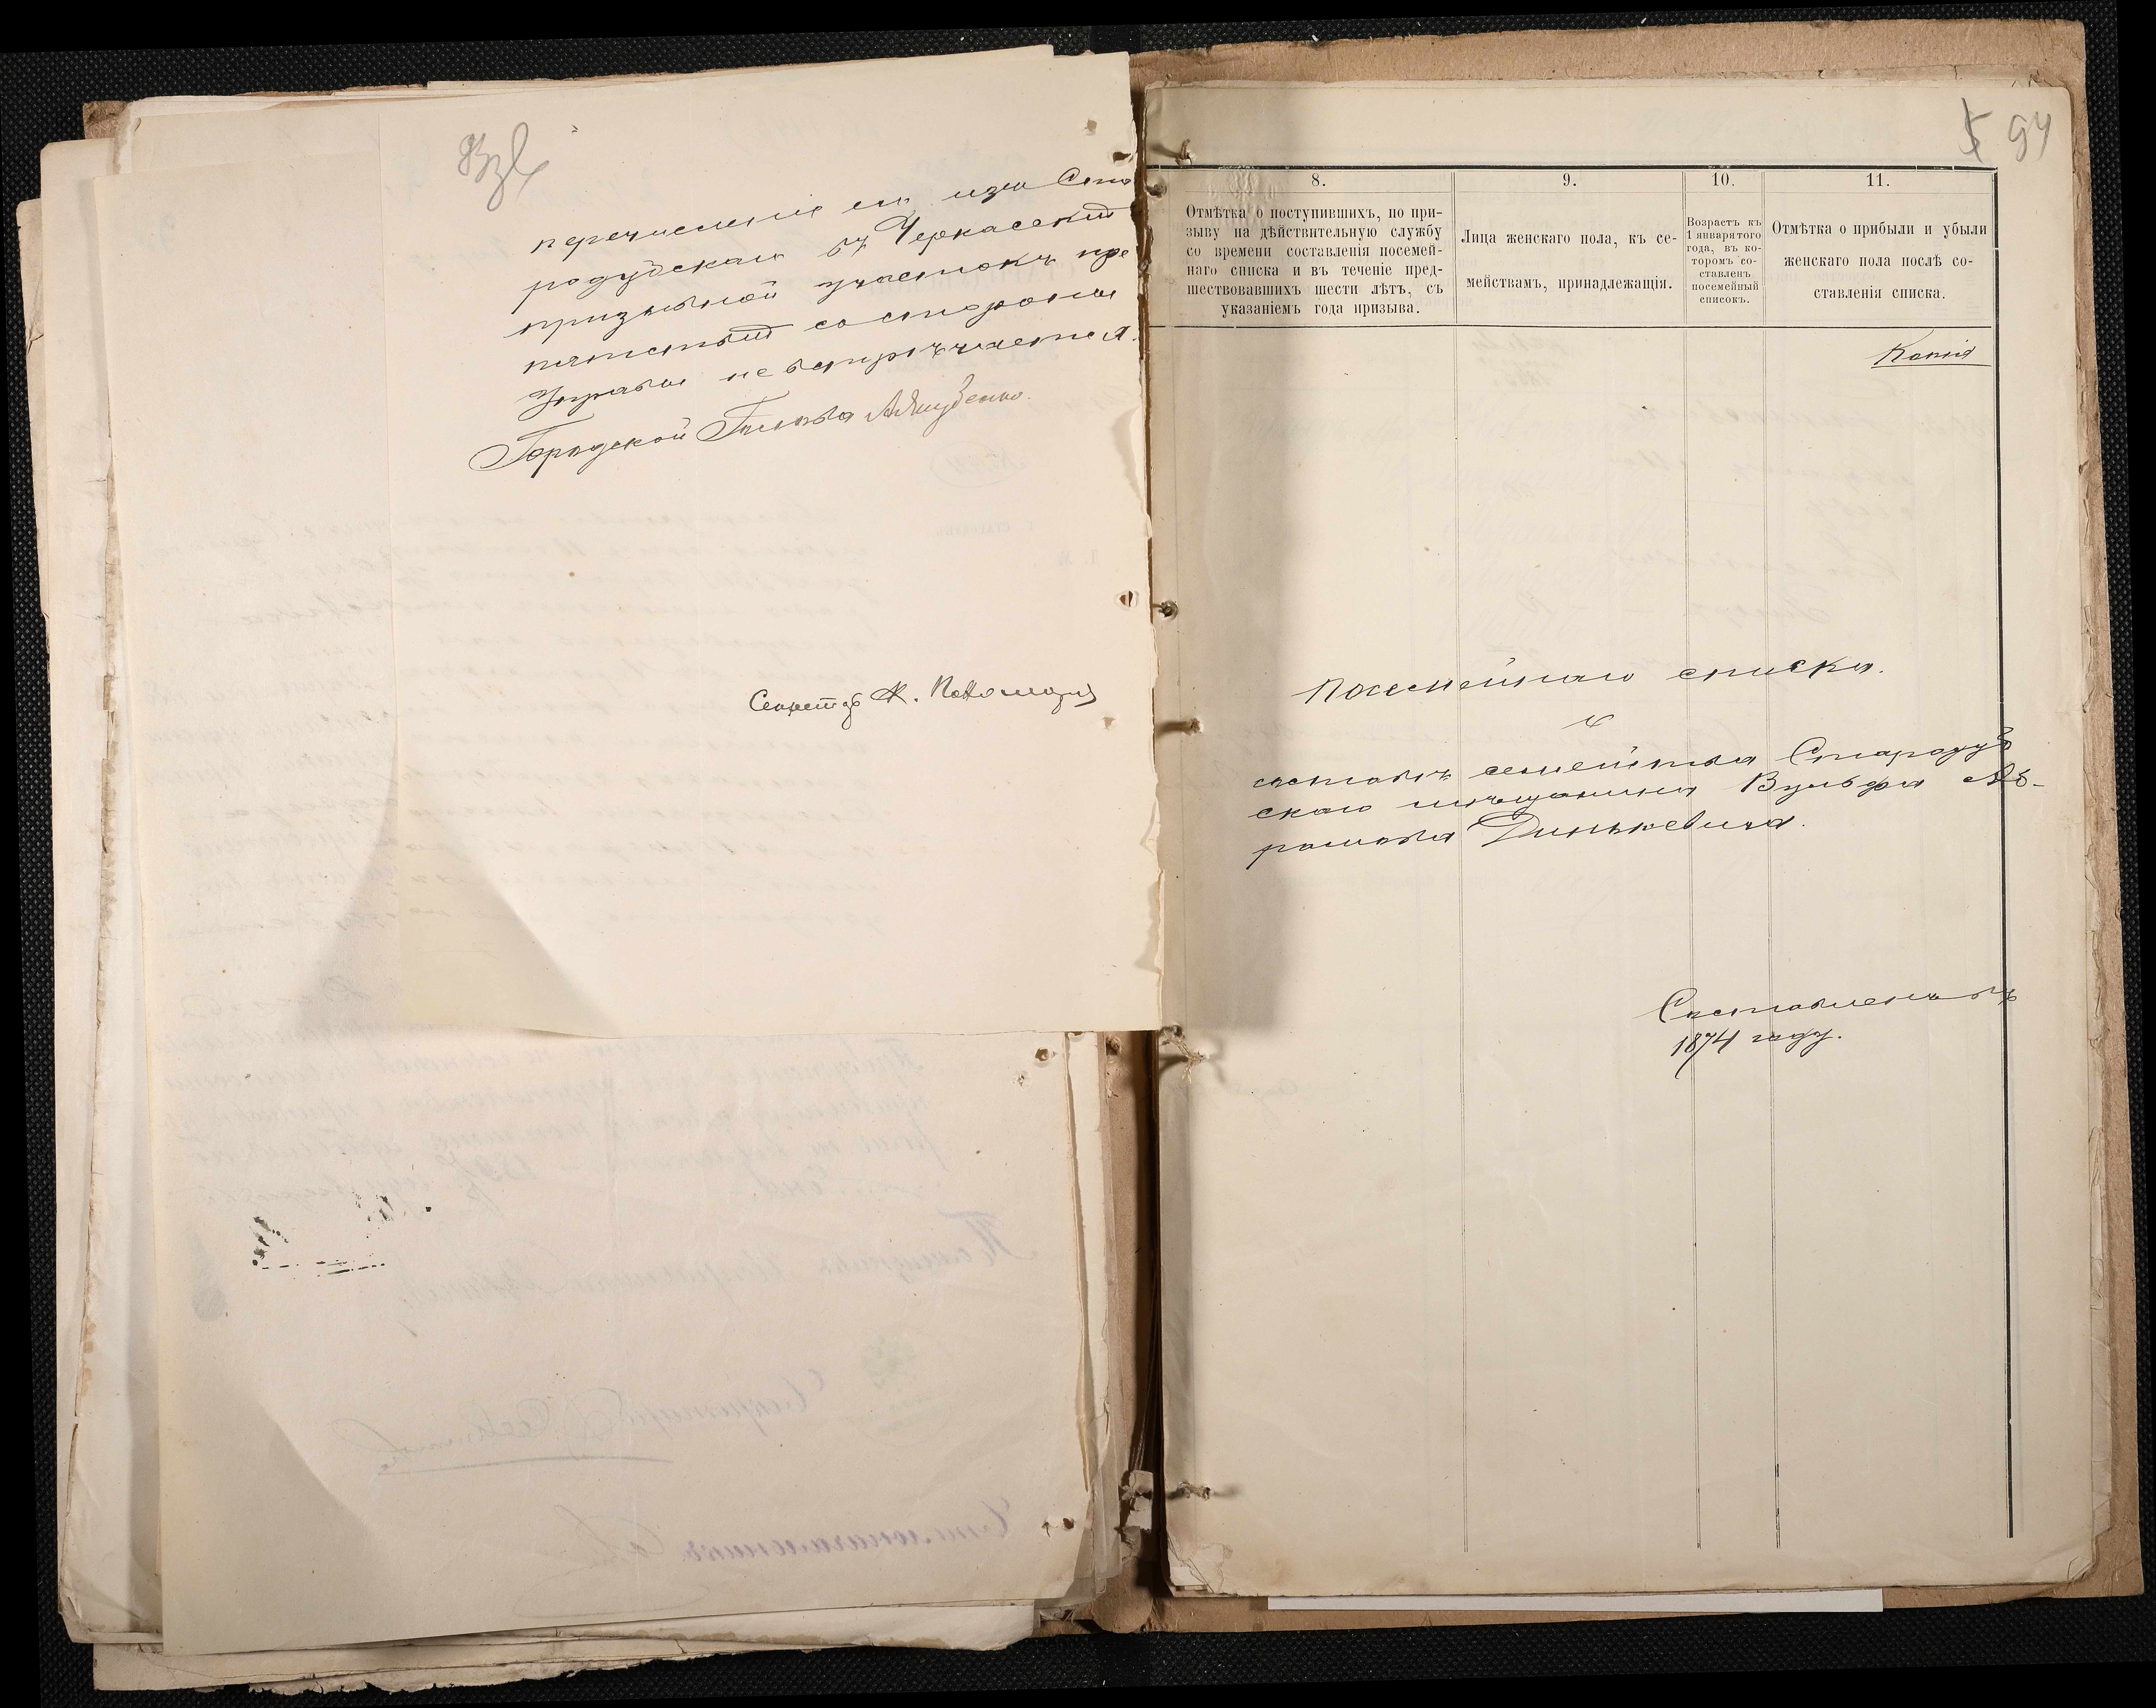 перечисленія его изъ Ста
родубскаго въ Черкасскій
призывной участокъ пре
пятствій со стороны
Управы не встрѣчается.
Городской Голова
Секретарь
94
8.
Отмѣтка о поступившихъ, по при-
зыву на дѣйствительную службу
со времени составленія посемей-
наго списка и въ теченіе пред-
шествовавшихъ шести лѣтъ, съ
указаніемъ года призыва.
9.
Лица женскаго пола, къ се-
мействамъ, принадлежащія.
10.
Возрастъ къ
1 января того
года, въ ко-
торомъ со-
ставленъ
посемейный
списокъ.
11.
Отмѣтка о прибыли и убыли
женскаго пола послѣ со-
ставленія списка.
Копія
Посемейнаго списка.
о
составѣ семейства Стародуб
скаго мѣщанина Вульфа Аб-
рамова Динькевича.
Составленъ въ
1874 году.